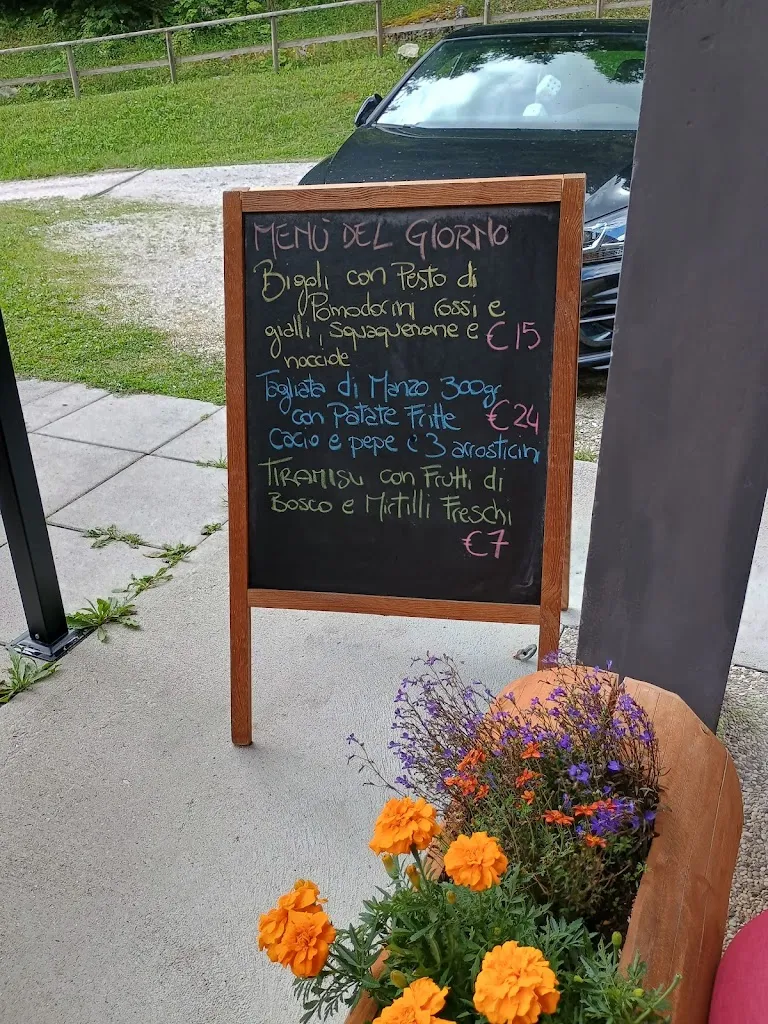 MENÙ DEL GIORNO
Bigoli con Pesto di
Pomodorini rossi e
gialli, squaquerone e €15
nocciole
Tagliata di Manzo 300gr
con Patate Fritte €24
cacio e pepe e 3 arrosticini
TIRAMISU con Frutti di
Bosco e Mirtilli Freschi
€7